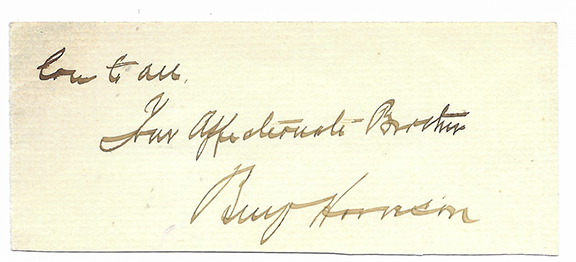 Love to all.
Your Affectionate Brother
Benj Harrison